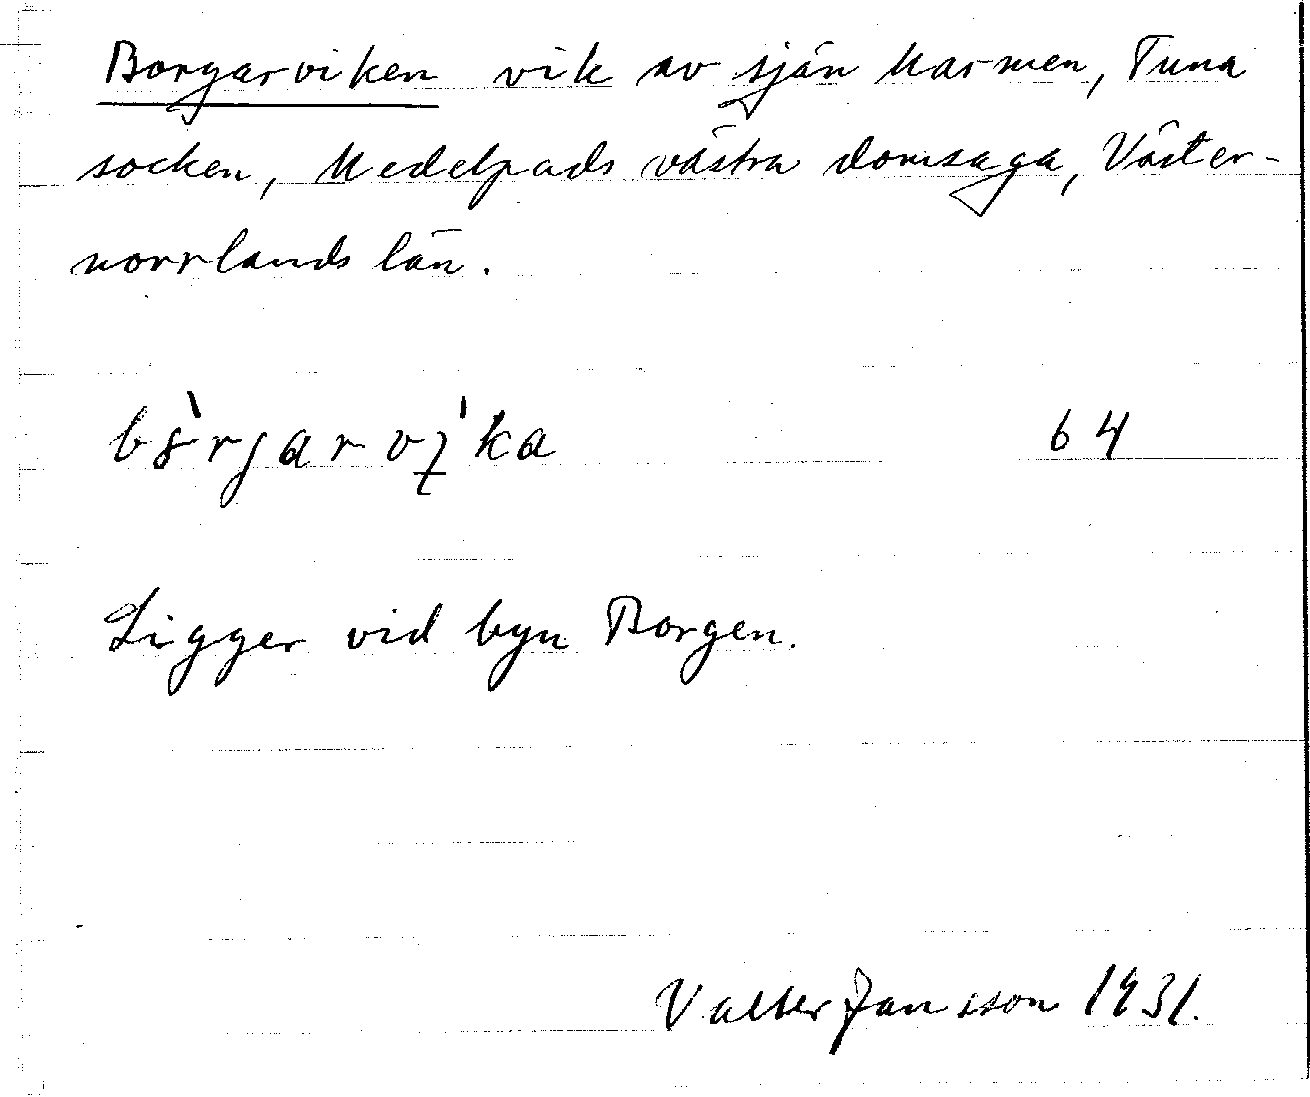 Borgarviken vik av sjön Marmen, Tuna
socken, Medelpads västra domsaga, Väster-
norrlands län.
64
Ligger vid byn Borgen.
Valter Jansson 1931.